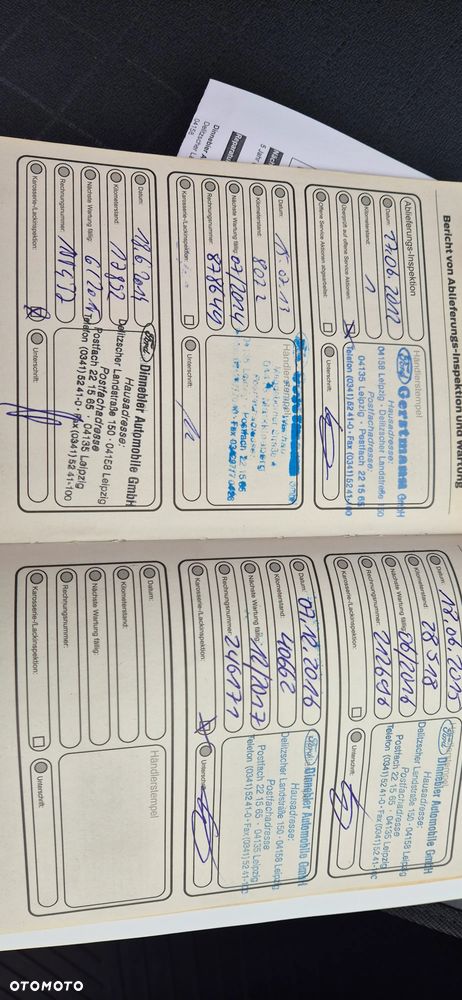 Bericht von Ablieferungs-Inspektion und Wartung
Ablieferungs-Inspektion
Datum: 17.06.2012
Kilometerstand: 1
Überprüft auf offene Service Aktionen:
Offene Service Aktionen abgearbeitet:
Händlerstempel
Ford Gerstmann GmbH
Hausadresse:
04158 Leipzig · Delitzscher Landstraße 150
Postfachadresse:
04135 Leipzig · Postfach 22 15 65
Telefon (0341) 52 41-0 · Fax (0341) 52 41-100
Unterschrift:
Datum: 15.07.13
Kilometerstand: 8022
Nächste Wartung fällig: 07/2014
Rechnungsnummer:
Karosserie-/Lackinspektion:
Händlerstempel
Postfach 22 15 65
Unterschrift:
Datum:
Kilometerstand: 17892
Nächste Wartung fällig:
Rechnungsnummer:
Karosserie-/Lackinspektion:
Ford Dinnebier Automobile GmbH
Hausadresse:
Delitzscher Landstraße 150 · 04158 Leipzig
Postfachadresse
Postfach 22 15 65 · 04135 Leipzig
Telefon (0341) 52 41-0 · Fax (0341) 52 41-100
Unterschrift:
Datum: 08.06.2015
Kilometerstand: 28518
Nächste Wartung fällig: 06/2016
Rechnungsnummer: 212696
Karosserie-/Lackinspektion:
Ford Dinnebier Automobile GmbH
Hausadresse:
Delitzscher Landstraße 150 · 04158 Leipzig
Postfachadresse
Postfach 22 15 65 · 04135 Leipzig
Telefon (0341) 52 41-0 · Fax (0341) 52 41-100
Unterschrift:
Datum: 07.12.2016
Kilometerstand: 40662
Nächste Wartung fällig: 12/2017
Rechnungsnummer: 346171
Karosserie-/Lackinspektion:
Ford Dinnebier Automobile GmbH
Hausadresse:
Delitzscher Landstraße 150 · 04158 Leipzig
Postfachadresse
Postfach 22 15 65 · 04135 Leipzig
Telefon (0341) 52 41-0 · Fax (0341) 52 41-100
Unterschrift:
Datum:
Kilometerstand:
Nächste Wartung fällig:
Rechnungsnummer:
Karosserie-/Lackinspektion:
Händlerstempel
Unterschrift:
OTOMOTO